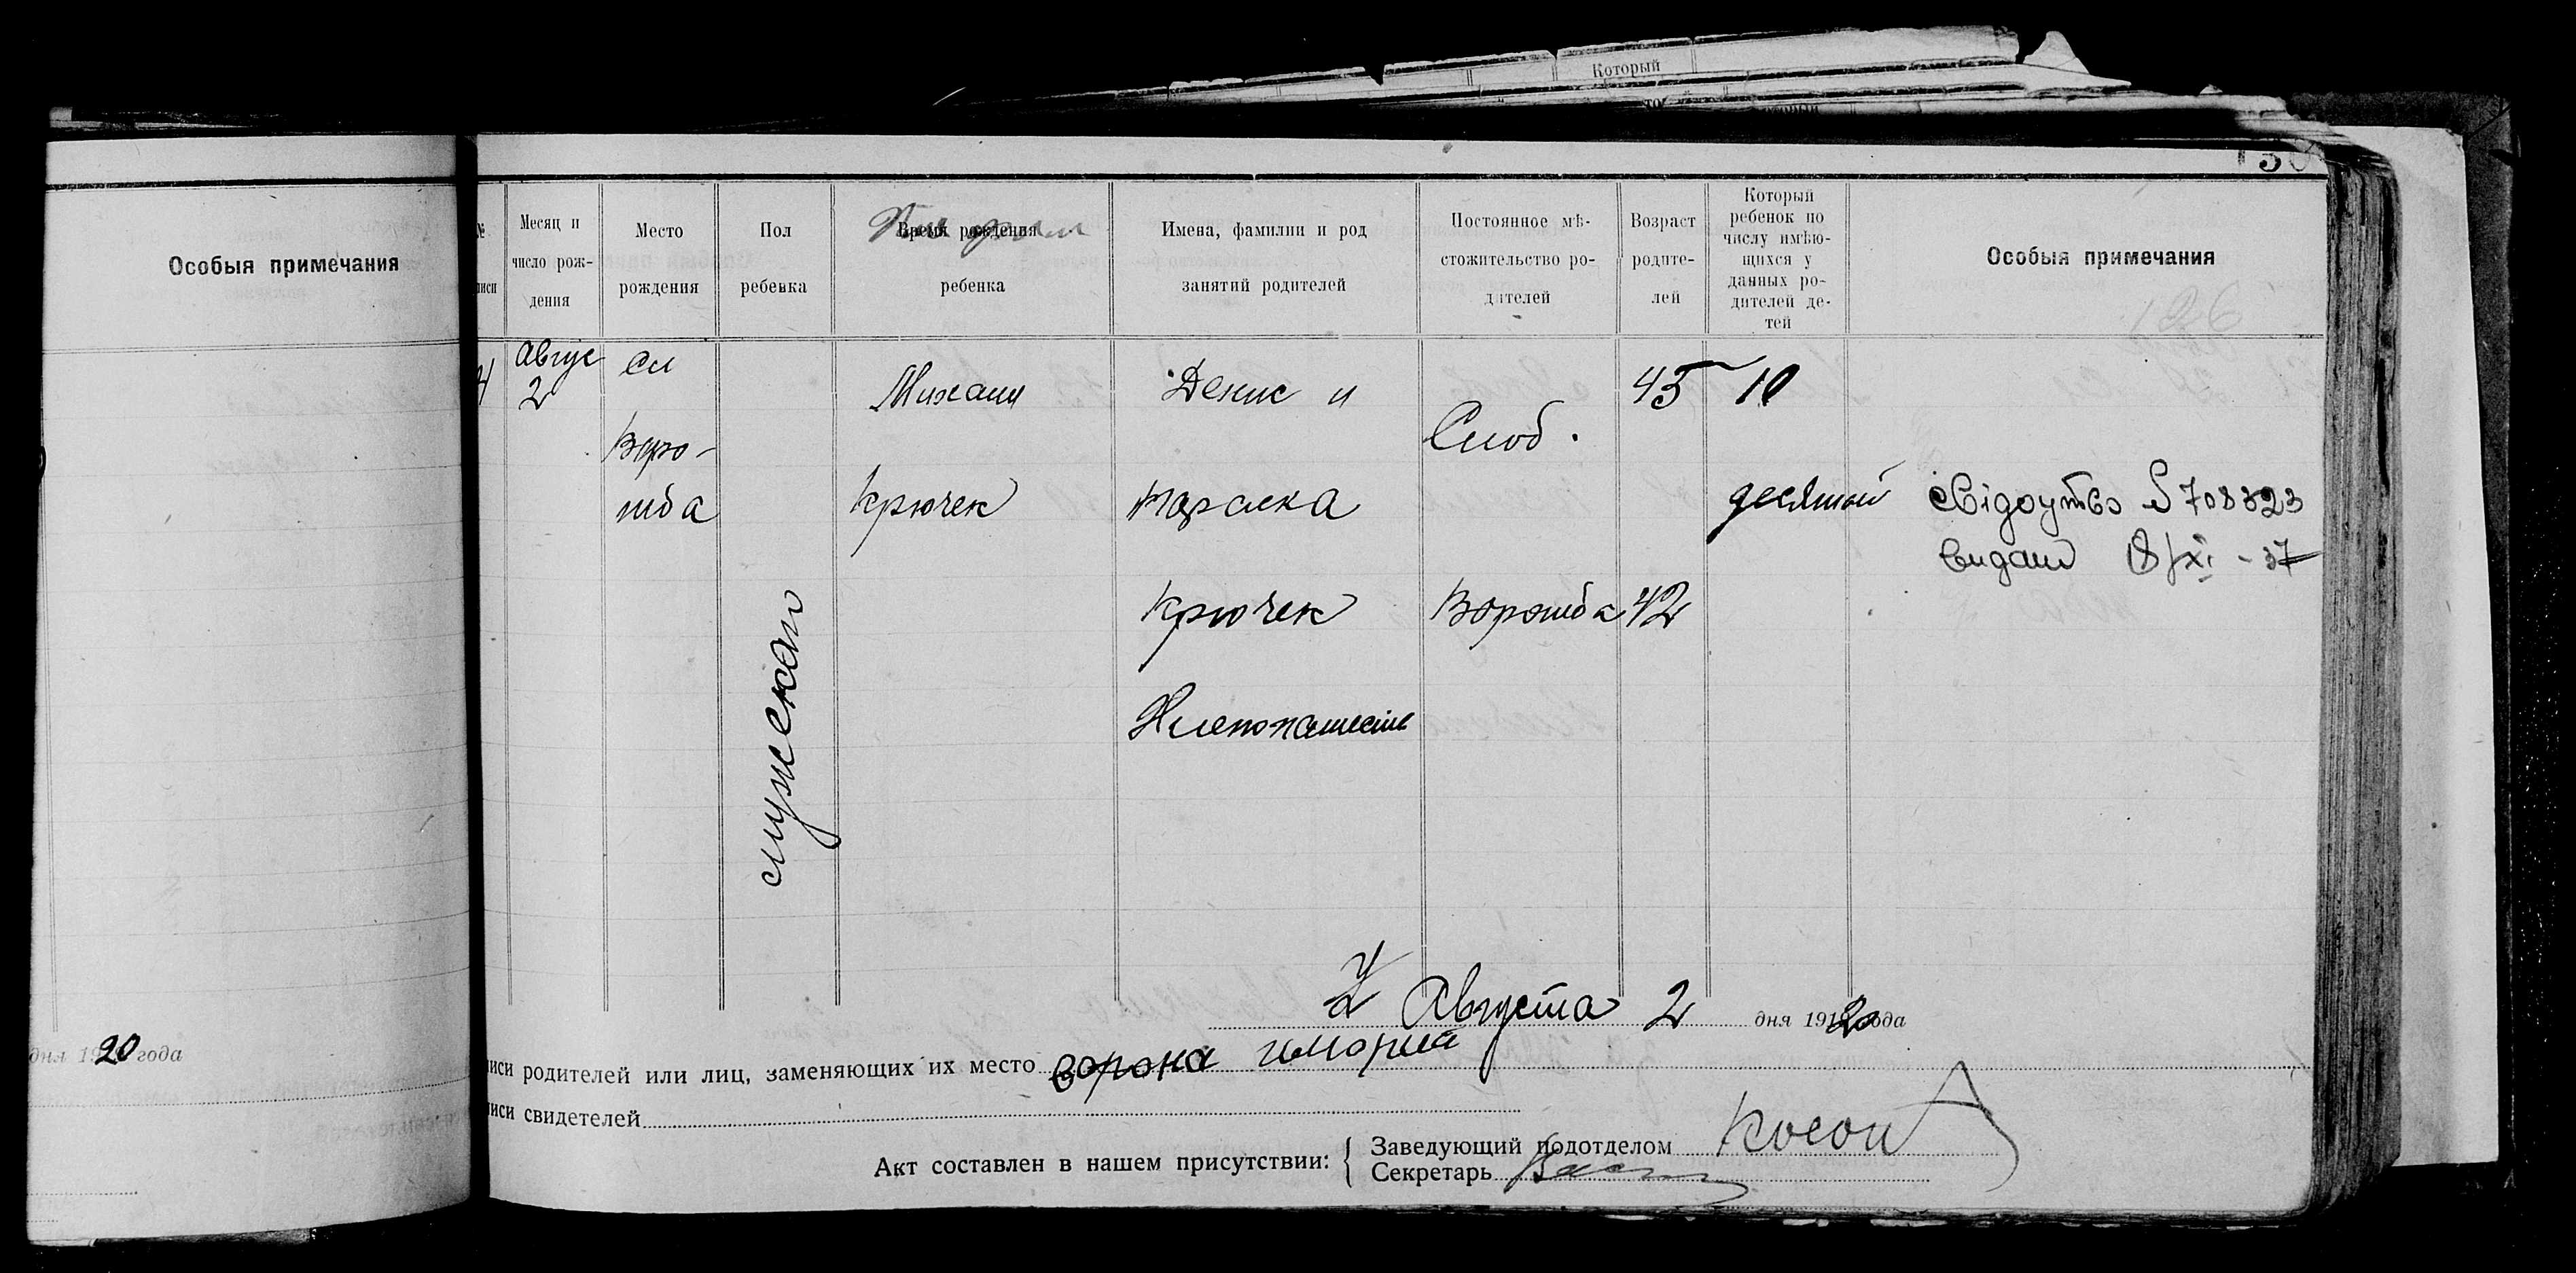 Который
130
Особыя примечания
дня 1920 года
№
писи
Месяц и
число рож-
дения
Место
рождения
Пол
ребенка
Время рождения
ребенка
Имена, фамилии и род
занятий родителей
Постоянное мѣ-
стожительство ро-
дителей
Возраст
родите-
лей
Который
ребенок по
числу имѣю-
щихся у
данных ро-
дителей де-
тей
Особыя примечания
126
4
Авгус
2
Сл
Воро-
жба
мужской
Михаил
Крючек
Денис и
Параска
Крючек
Хлебопашест
Слоб.
Ворожба
45
42
10
десятый
Свідоцтво № 708323
видано 18/XI - 37
Августа 2 дня 1920 года
писи родителей или лиц, заменяющих их место ворона
писи свидетелей
Акт составлен в нашем присутствии:
Заведующий подотделом
Секретарь